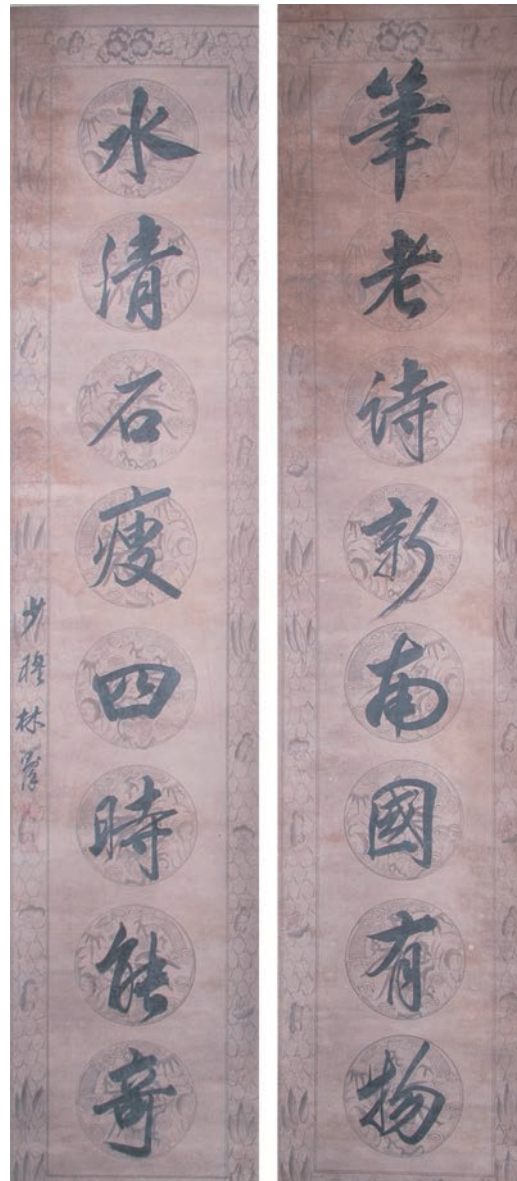 筆老詩新南國有物
水清石瘦四時能奇
少穆林